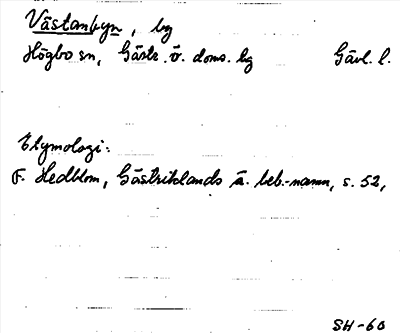 Västanbyn, by
Högbo sn, Gästr. ö. doms. hg Gävl. l.
Etymologi:
F. Hedblom, Gästriklands ä. beb.-namn, s. 52,
SH-60